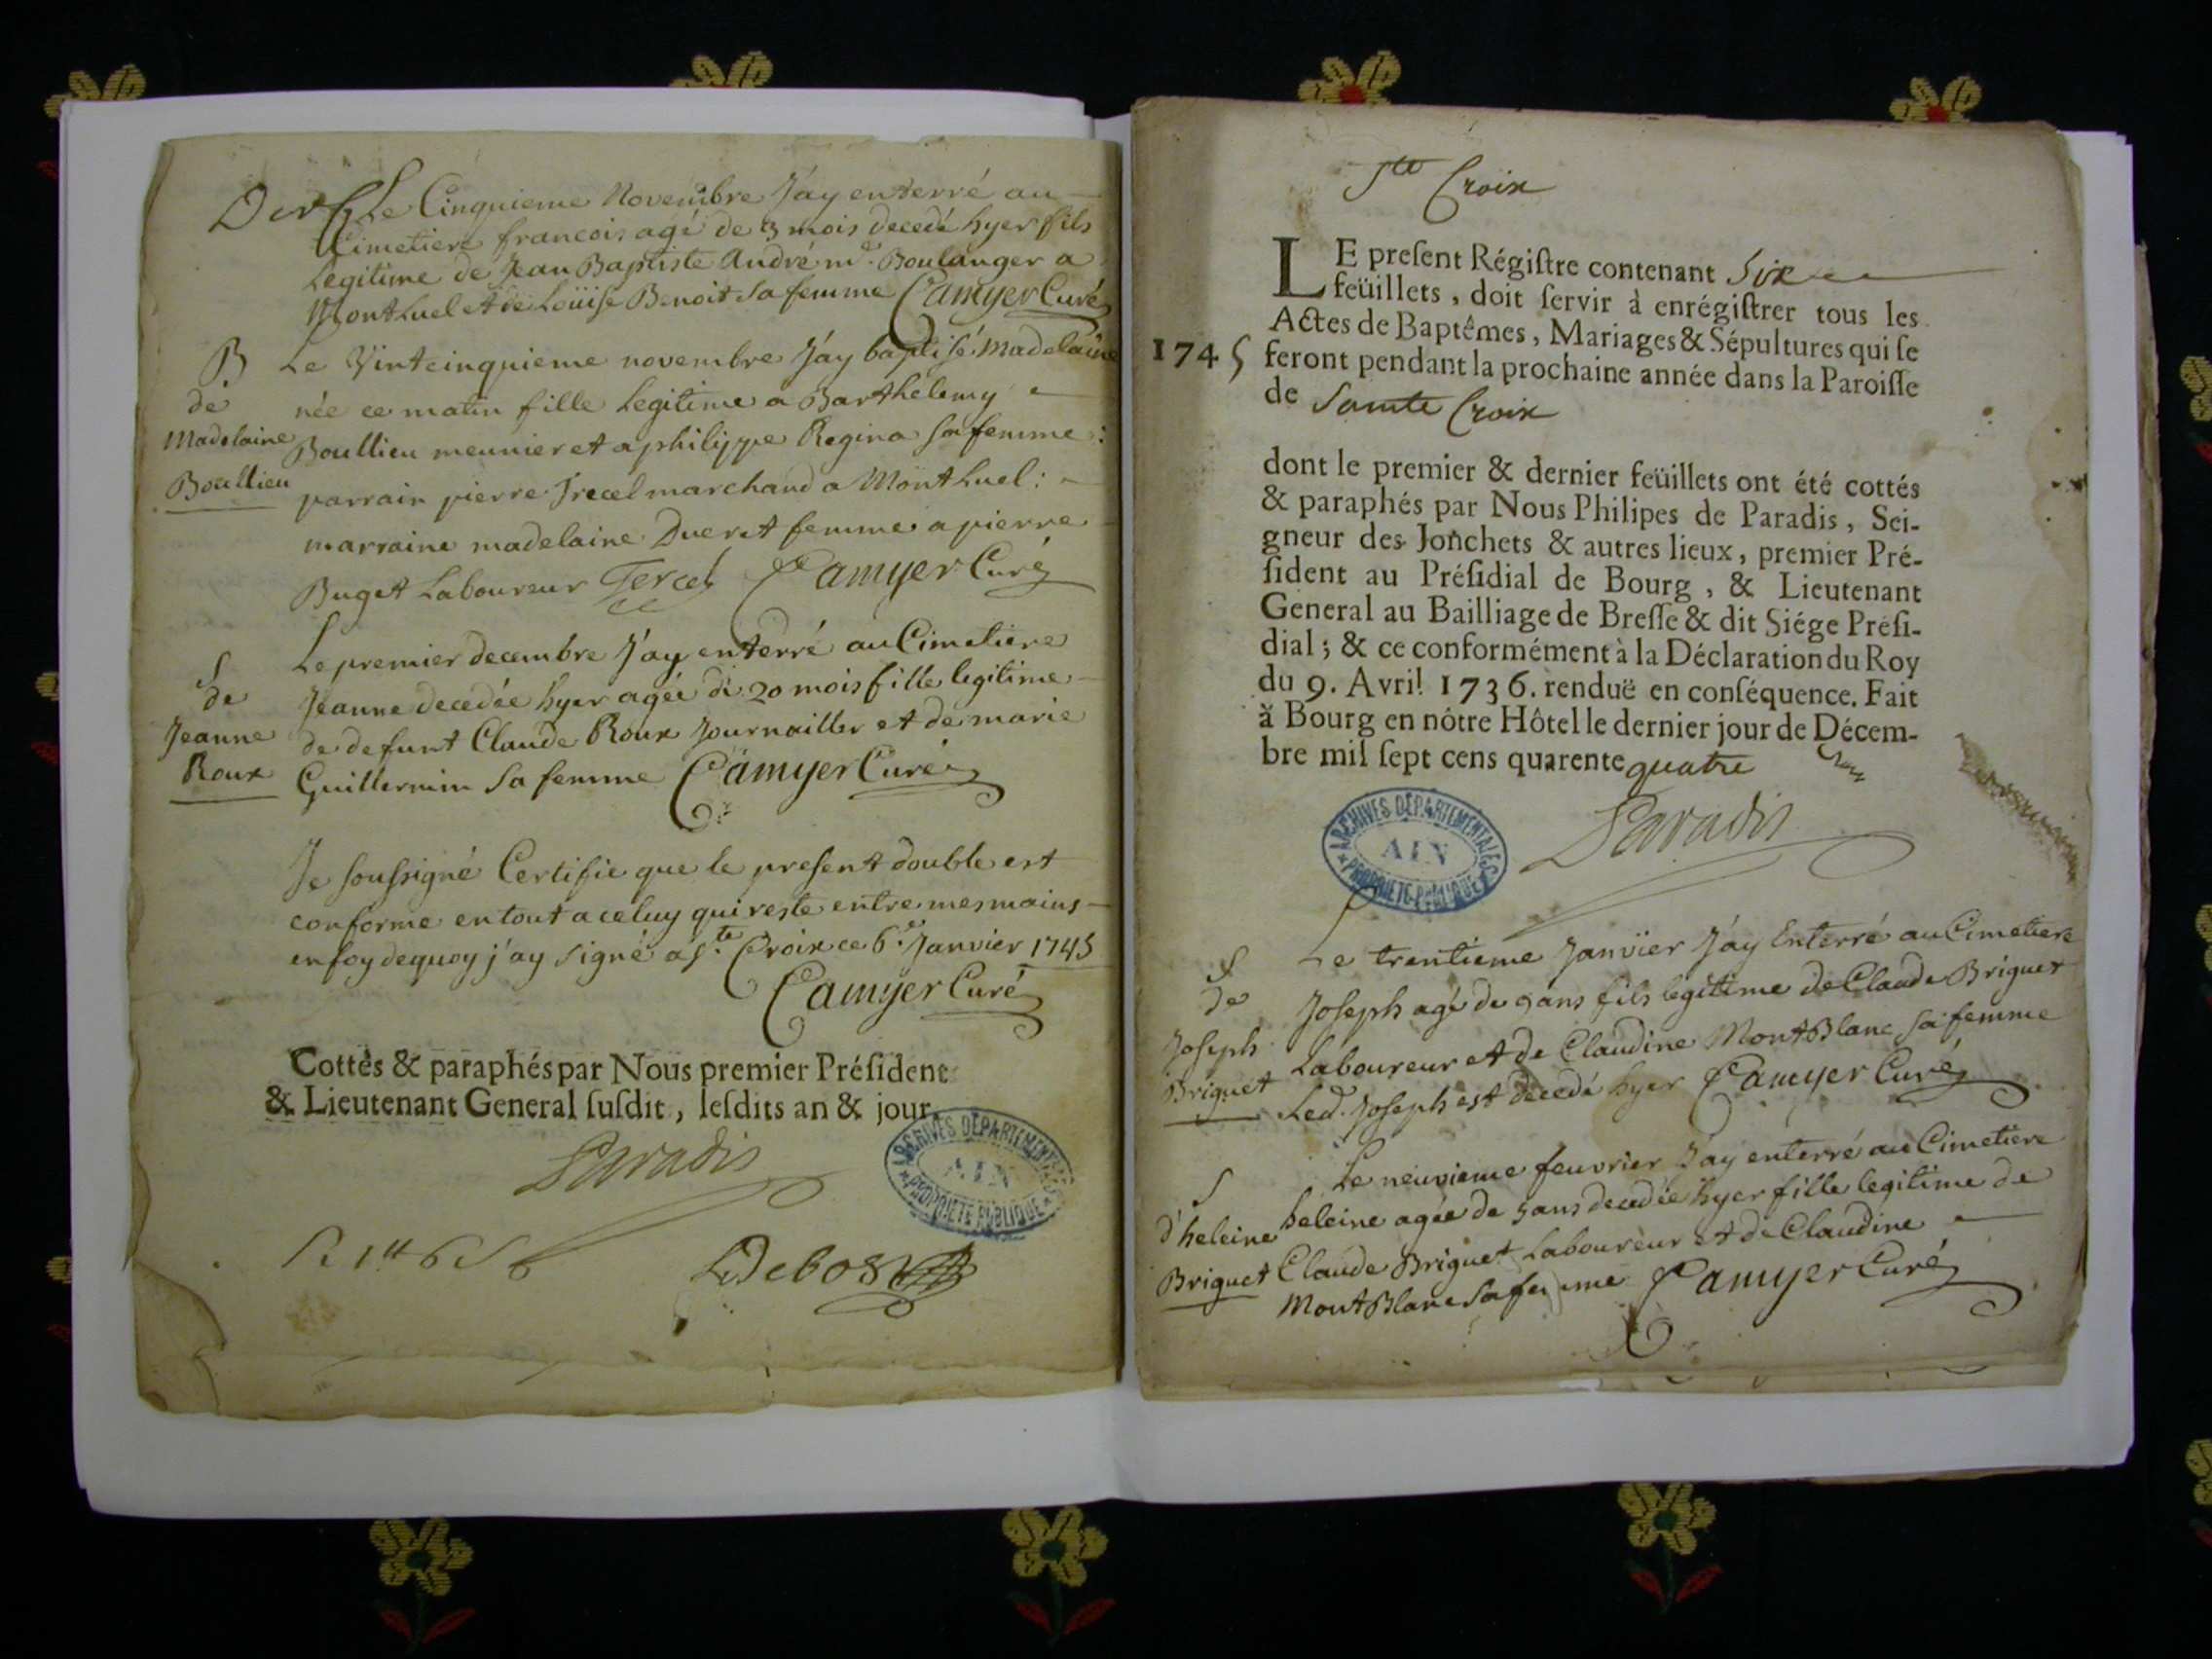 Le Cinquieme Novembre J'ay enterré au
Cimetiere francois agé de 3 mois decedé hyer fils
Legitime de Jean Baptiste André md. Boulanger a
Montluel et de Loüise Benoit sa femme Camyer Curé
B
de
Madelaine
Boullieu
Le Vintcinquieme novembre J'ay baptisé Madelaine
née ce matin fille Legitime a Barthelemy
Boullieu meunier et a philippe Regina sa femme :
parrain pierre Trecel marchand a Montluel :
marraine madelaine Ducret femme a pierre
Buget Laboureur Tercel Camyer Curé
S
de
Jeanne
Roux
Le premier decembre J'ay enterré au Cimetiere
Jeanne decedée hyer agée de 20 mois fille legitime
de defunt Claude Roux Journaillier et de marie
Guillermin sa femme Camyer Curé
Je soussigné Certifie que le present double est
conforme en tout a celuy qui reste entre mes mains
en foy dequoy j'ay signé a Ste. Croix ce 6e. Janvier 1745
Camyer Curé
Cottés & paraphés par Nous premier Président
& Lieutenant General susdit, lesdits an & jour.
Paradis
ARCHIVES DÉPARTEMENTALES
AIN
PROPRIÉTÉ PUBLIQUE
Debos
Ste Croix
LE present Régistre contenant Six
feüillets, doit servir à enrégistrer tous les
Actes de Baptêmes, Mariages & Sépultures qui se
1745 feront pendant la prochaine année dans la Paroisse
de Sainte Croix
dont le premier & dernier feüillets ont été cottés
& paraphés par Nous Philipes de Paradis, Sei-
gneur des Jonchets & autres lieux, premier Pré-
sident au Présidial de Bourg, & Lieutenant
General au Bailliage de Bresse & dit Siége Présidi-
dial ; & ce conformément à la Déclaration du Roy
du 9. Avril 1736. renduë en conséquence. Fait
à Bourg en nôtre Hôtel le dernier jour de Décem-
bre mil sept cens quarente quatre
Paradis
ARCHIVES DÉPARTEMENTALES
AIN
PROPRIÉTÉ PUBLIQUE
S
de
Joseph
Briguet
Le trentieme Janvier J'ay Enterré au Cimetiere
Joseph agé de 9 ans fils legitime de Claude Briguet
Laboureur et de Claudine MontBlanc sa femme
Led. Joseph est decedé hyer Camyer Curé
S
d'heleine
Briguet
Le neuvieme feuvrier J'ay enterré au Cimetiere
heleine agée de 5 ans decedée hyer fille legitime de
Claude Briguet Laboureur et de Claudine
MontBlanc sa femme Camyer Curé